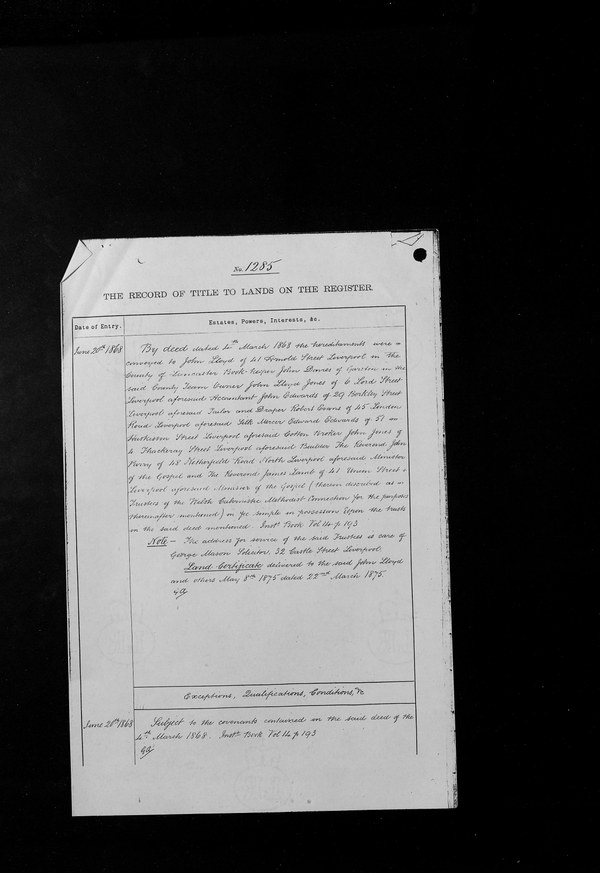 No. 1285
THE RECORD OF TITLE TO LANDS ON THE REGISTER.
Date of Entry.
Estates, Powers, Interests, &c.
June 20th 1868
By deed dated 4th March 1868 the hereditaments were
conveyed to John Lloyd of 41 Street Liverpool in the
County of Lancaster Book-keeper John Davies of Garston in the
said County Team Owner John Lloyd Jones of 6 Lord Street
Liverpool aforesaid Accountant John Edwards of 29 Berkley Street
Liverpool aforesaid Tailor and Draper Robert Evans of 45 London
Road Liverpool aforesaid Silk Mercer Edward Edwards of 57
Huskisson Street Liverpool aforesaid Cotton Broker John Jones of
4 Thackeray Street Liverpool aforesaid Builder The Reverend John
of 48 Netherfield Road North Liverpool aforesaid Minister
of the Gospel and The Reverend James Lamb of 41 Union Street
Liverpool aforesaid Minister of the Gospel (therein described as
Trustees of the Welsh Calvinistic Methodist Connection for the purposes
thereinafter mentioned) in fee simple in possession Upon the trusts
in the said deed mentioned. Inst. Book Vol 14 p 193
Note - The address for service of the said Trustees is care of
George Mason Solicitor, 32 Castle Street Liverpool
Land Certificate delivered to the said John Lloyd
and others May 8th 1875 dated 22nd March 1875.
Exceptions, Qualifications, Conditions, &c
June 20th 1868
Subject to the covenants contained in the said deed of the
4th March 1868. Inst. Book Vol 14 p 193